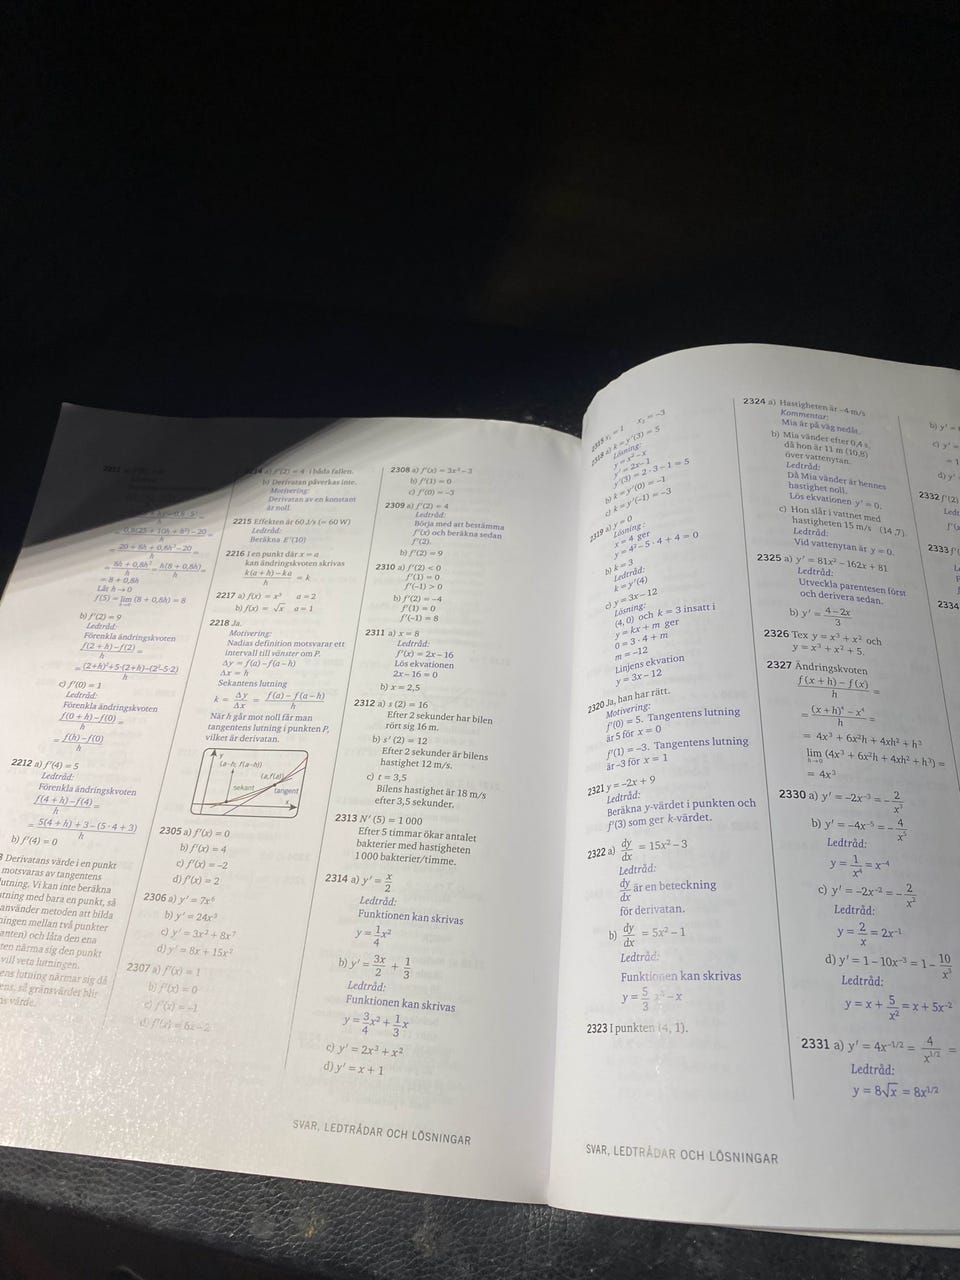 0,8(25 + 10h + h²) – 20
h
20 + 8h + 0,8h² – 20
h
8h + 0,8h² = h(8 + 0,8h) =
h h
= 8 + 0,8h
Låt h → 0
f(5) = lim (8 + 0,8h) = 8
h→0
b) f′(2) = 9
Ledtråd:
Förenkla ändringskvoten
f(2 + h) – f(2) =
h
= (2+h)²+5·(2+h)–(2²–5·2)
h
c) f′(0) = 1
Ledtråd:
Förenkla ändringskvoten
f(0 + h) – f(0) =
h
= f(h) – f(0)
h
2212 a) f′(4) = 5
Ledtråd:
Förenkla ändringskvoten
f(4 + h) – f(4) =
h
= 5(4 + h) + 3 – (5 · 4 + 3)
h
b) f′(4) = 0
Derivatans värde i en punkt
motsvaras av tangentens
lutning. Vi kan inte beräkna
med bara en punkt, så
använder metoden att bilda
mellan två punkter
och låta den ena
närma sig den punkt
vill veta lutningen.
lutning närmar sig då
så gränsvärdet blir
värde.
a) f′(2) = 4 i båda fallen.
b) Derivatan påverkas inte.
Motivering:
Derivatan av en konstant
är noll.
2215 Effekten är 60 J/s (= 60 W)
Ledtråd:
Beräkna E′(10)
2216 I en punkt där x = a
kan ändringskvoten skrivas
k(a + h) – ka = k
h
2217 a) f(x) = x³ a = 2
b) f(x) = √x a = 1
2218 Ja.
Motivering:
Nadias definition motsvarar ett
intervall till vänster om P.
Δy = f(a) – f(a – h)
Δx = h
Sekantens lutning
k = Δy = f(a) – f(a – h)
Δx h
När h går mot noll får man
tangentens lutning i punkten P,
vilket är derivatan.
y
(a–h; f(a–h))
(a, f(a))
sekant
tangent
x
2305 a) f′(x) = 0
b) f′(x) = 4
c) f′(x) = –2
d) f′(x) = 2
2306 a) y′ = 7x⁶
b) y′ = 24x³
c) y′ = 3x² + 8x⁷
d) y′ = 8x + 15x²
2307 a) f′(x) = 1
b) f′(x) = 0
c) f′(x) = –1
d) f′(x) = 6x – 2
2308 a) f′(x) = 3x² – 3
b) f′(1) = 0
c) f′(0) = –3
2309 a) f′(2) = 4
Ledtråd:
Börja med att bestämma
f′(x) och beräkna sedan
f′(2).
b) f′(2) = 9
2310 a) f′(2) < 0
f′(1) = 0
f′(–1) > 0
b) f′(2) = –4
f′(1) = 0
f′(–1) = 8
2311 a) x = 8
Ledtråd:
f′(x) = 2x – 16
Lös ekvationen
2x – 16 = 0
b) x = 2,5
2312 a) s (2) = 16
Efter 2 sekunder har bilen
rört sig 16 m.
b) s′ (2) = 12
Efter 2 sekunder är bilens
hastighet 12 m/s.
c) t = 3,5
Bilens hastighet är 18 m/s
efter 3,5 sekunder.
2313 N′ (5) = 1 000
Efter 5 timmar ökar antalet
bakterier med hastigheten
1 000 bakterier/timme.
2314 a) y′ = x
2
Ledtråd:
Funktionen kan skrivas
y = 1 x²
4
b) y′ = 3x + 1
2 3
Ledtråd:
Funktionen kan skrivas
y = 3 x² + 1 x
4 3
c) y′ = 2x³ + x²
d) y′ = x + 1
SVAR, LEDTRÅDAR OCH LÖSNINGAR
2315 x₁ = 1 x₂ = –3
2318 a) k = y′(3) = 5
Lösning:
y = x² – x
y′ = 2x – 1
y′(3) = 2 · 3 – 1 = 5
b) k = y′(0) = –1
c) k = y′(–1) = –3
2319 a) y = 0
Lösning:
x = 4 ger
y = 4² – 5 · 4 + 4 = 0
b) k = 3
Ledtråd:
k = y′(4)
c) y = 3x – 12
Lösning:
(4, 0) och k = 3 insatt i
y = kx + m ger
0 = 3 · 4 + m
m = –12
Linjens ekvation
y = 3x – 12
2320 Ja, han har rätt.
Motivering:
f′(0) = 5. Tangentens lutning
är 5 för x = 0
f′(1) = –3. Tangentens lutning
är –3 för x = 1
2321 y = –2x + 9
Ledtråd:
Beräkna y-värdet i punkten och
f′(3) som ger k-värdet.
2322 a) dy = 15x² – 3
dx
Ledtråd:
dy är en beteckning
dx
för derivatan.
b) dy = 5x² – 1
dx
Ledtråd:
Funktionen kan skrivas
y = 5 x³ – x
3
2323 I punkten (4, 1).
SVAR, LEDTRÅDAR OCH LÖSNINGAR
2324 a) Hastigheten är –4 m/s
Kommentar:
Mia är på väg nedåt.
b) Mia vänder efter 0,4 s,
då hon är 11 m (10,8)
över vattenytan.
Ledtråd:
Då Mia vänder är hennes
hastighet noll.
Lös ekvationen y′ = 0.
c) Hon slår i vattnet med
hastigheten 15 m/s (14,7).
Ledtråd:
Vid vattenytan är y = 0.
2325 a) y′ = 81x² – 162x + 81
Ledtråd:
Utveckla parentesen först
och derivera sedan.
b) y′ = 4 – 2x
3
2326 T ex y = x³ + x² och
y = x³ + x² + 5.
2327 Ändringskvoten
f(x + h) – f(x) =
h
= (x + h)⁴ – x⁴ =
h
= 4x³ + 6x²h + 4xh² + h³
lim (4x³ + 6x²h + 4xh² + h³) =
h→0
= 4x³
2330 a) y′ = –2x⁻³ = – 2
x³
b) y′ = –4x⁻⁵ = – 4
x⁵
Ledtråd:
y = 1 = x⁻⁴
x⁴
c) y′ = –2x⁻² = – 2
x²
Ledtråd:
y = 2 = 2x⁻¹
x
d) y′ = 1 – 10x⁻³ = 1 – 10
x³
Ledtråd:
y = x + 5 = x + 5x⁻²
x²
2331 a) y′ = 4x⁻¹/² = 4 =
x¹/²
Ledtråd:
y = 8√x = 8x¹/²
b) y′ =
c) y′ =
d) y′
2332 f′(2)
2333
2334